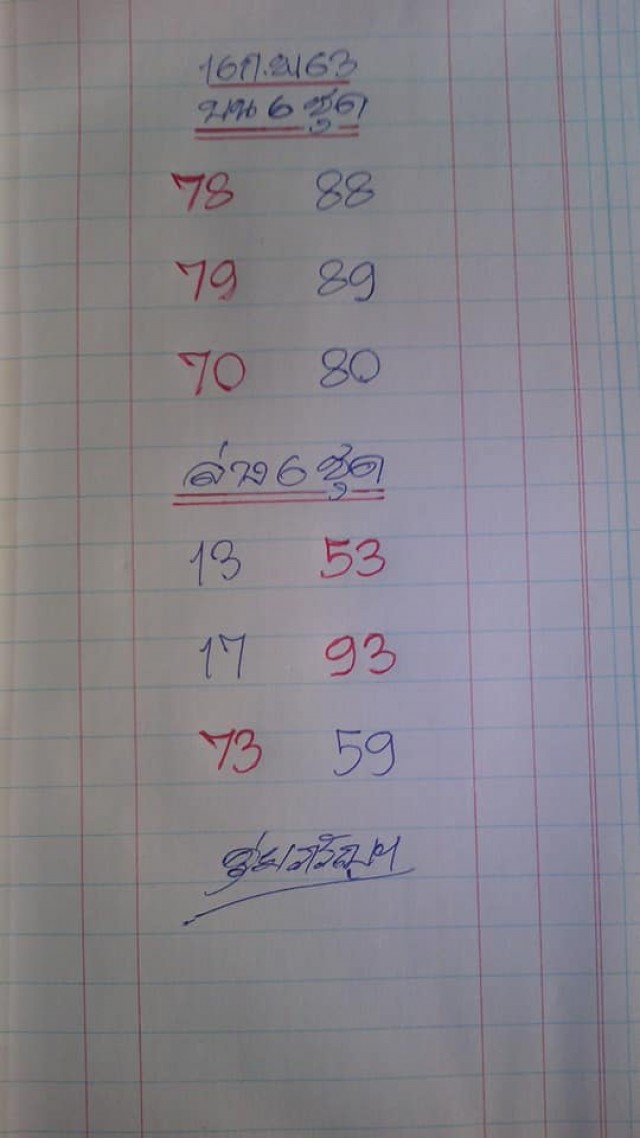 16ก.พ63
บน 6 ชุด
78 88
79 89
70 80
ล่าง 6 ชุด
13 53
17 93
73 59